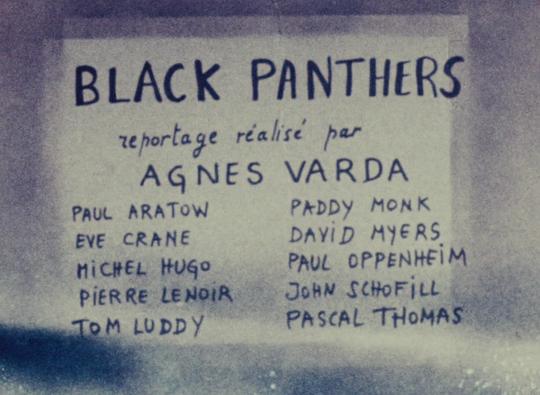 BLACK PANTHERS
reportage réalisé par
AGNES VARDA
PAUL ARATOW
EVE CRANE
MICHEL HUGO
PIERRE LENOIR
TOM LUDDY
PADDY MONK
DAVID MYERS
PAUL OPPENHEIM
JOHN SCHOFILL
PASCAL THOMAS